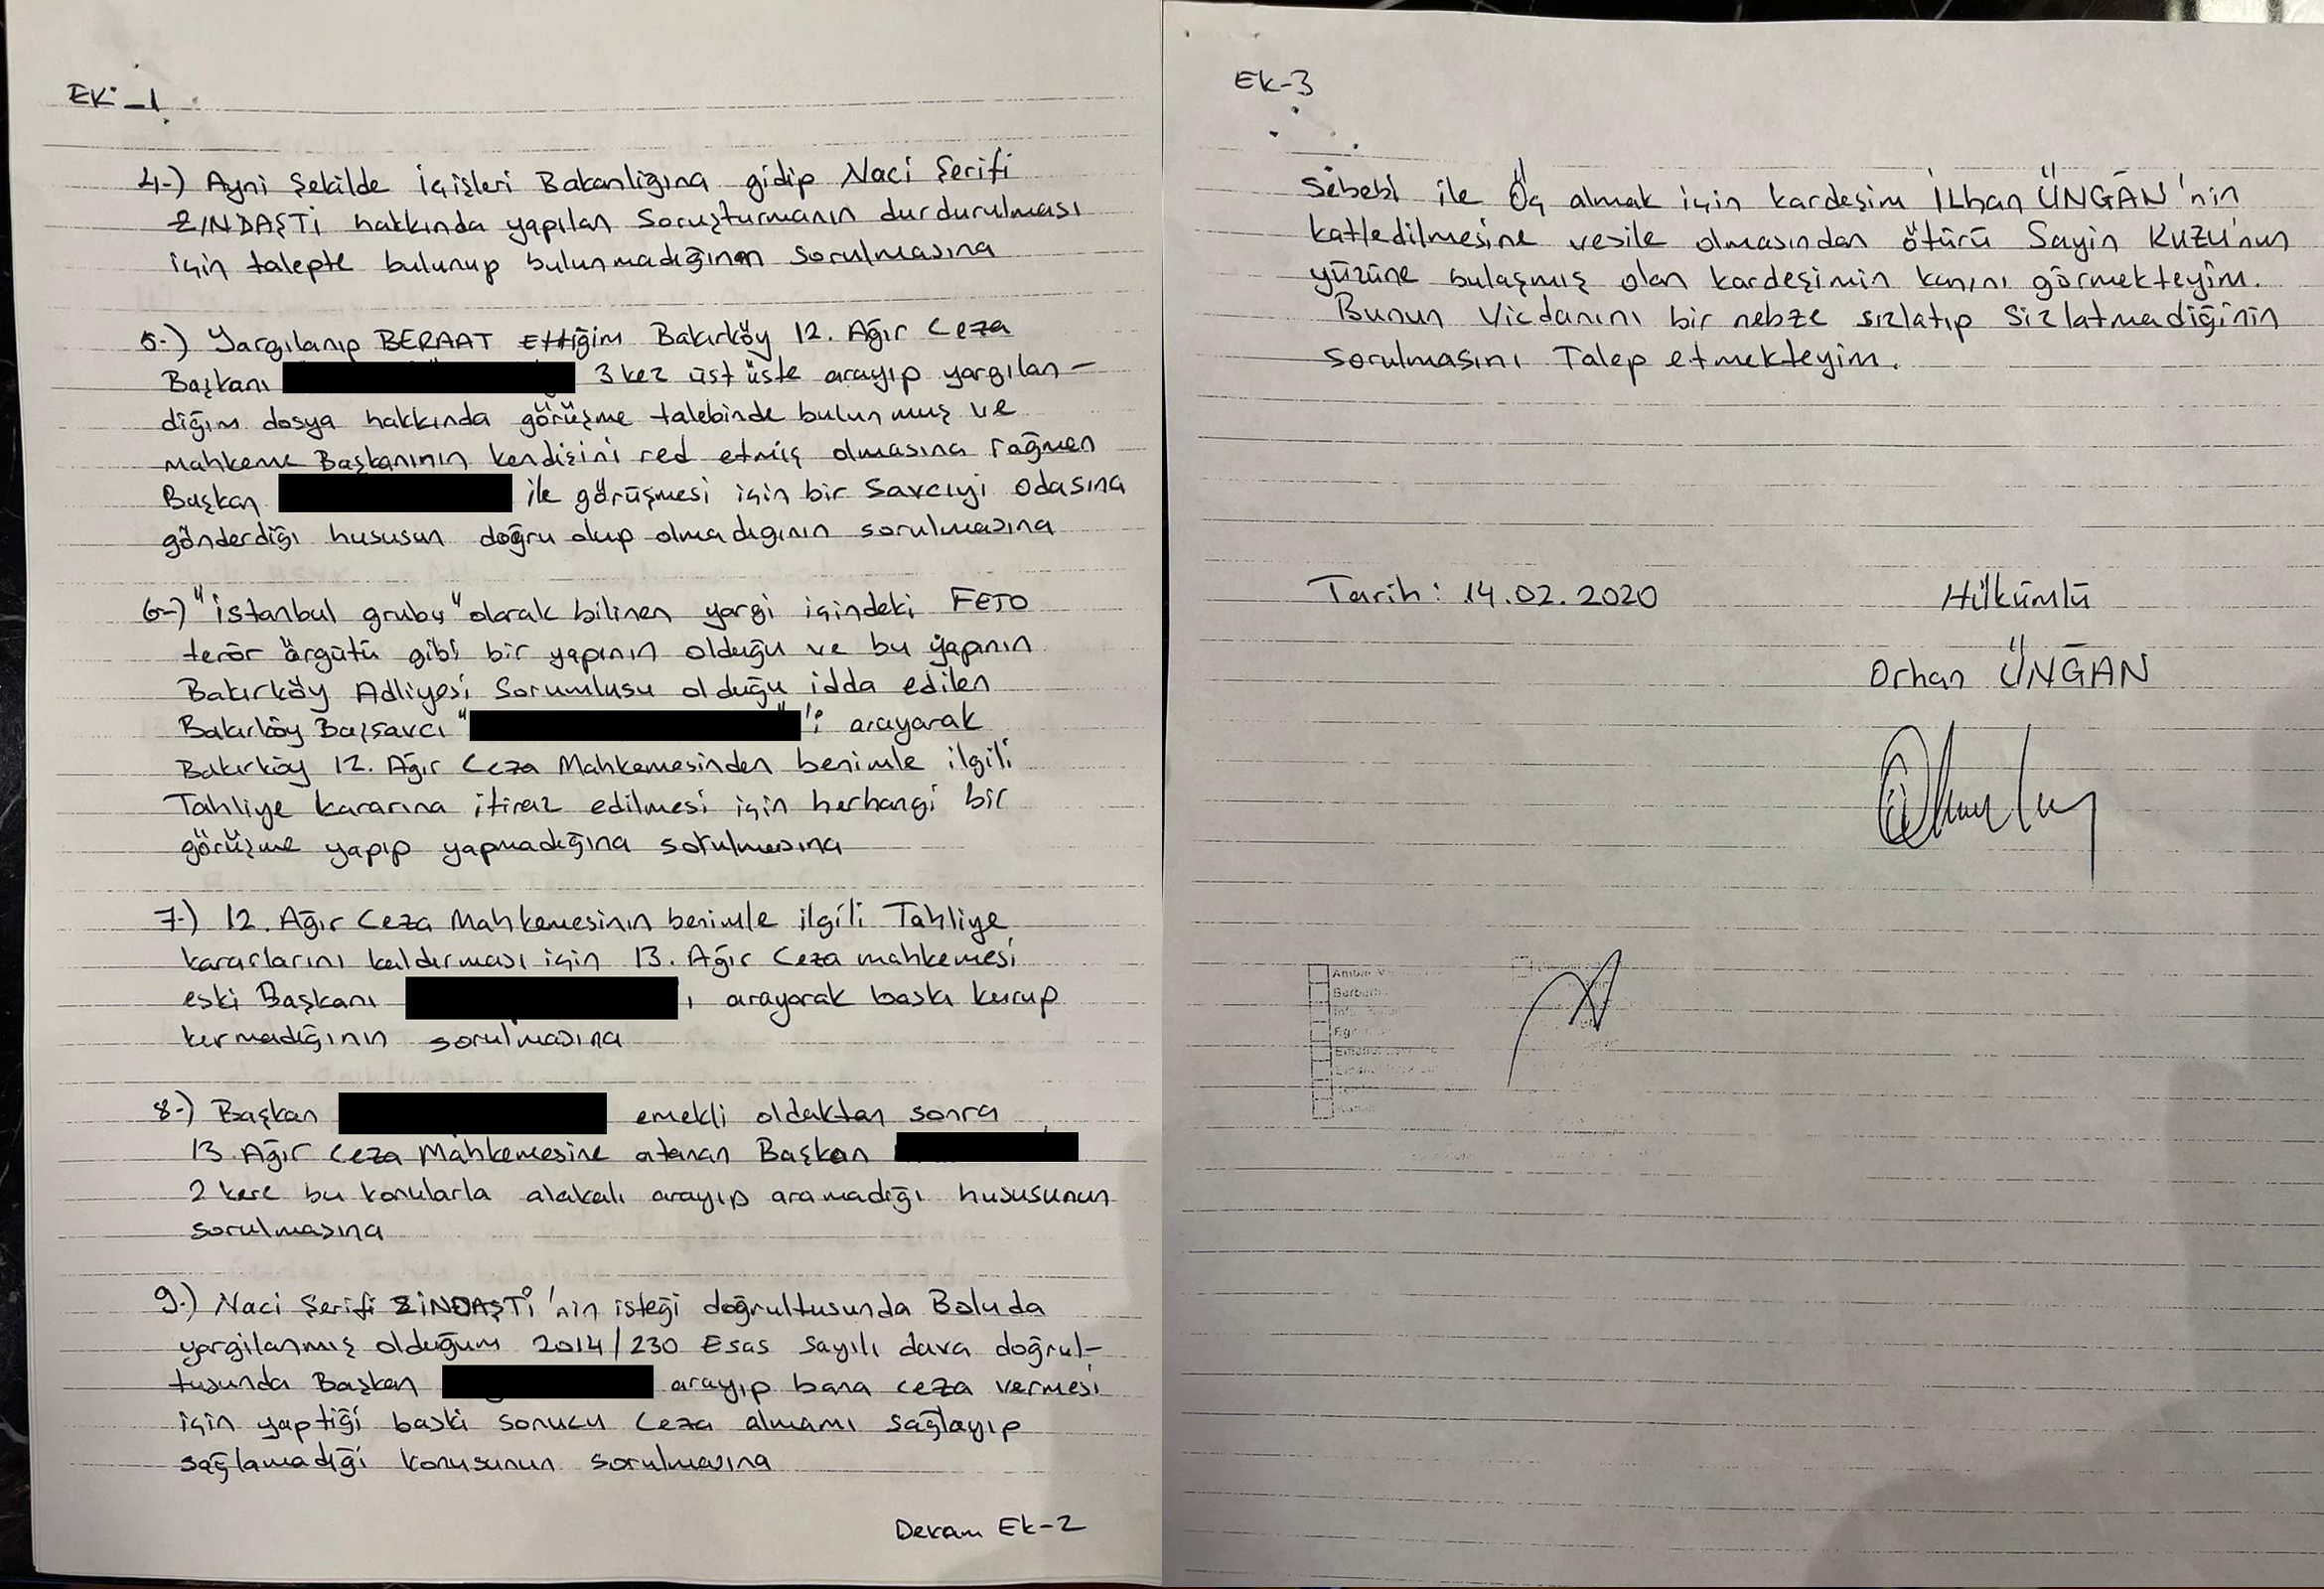 EK-1
4-) Ayni Şekilde İçişleri Bakanliğina gidip Naci Şerifi
ZINDAŞTİ hakkında yapılan Soruşturmanın durdurulması
için talepte bulunup bulunmadığının sorulmasına
5-) Yargılanıp BERAAT Ettiğim Bakırköy 12. Ağır Ceza
Başkanı 3 kez üst üste arayıp yargılan-
diğım dosya hakkında görüşme talebinde bulunmuş ve
mahkeme Başkanının kendisini red etmiş olmasına rağmen
Başkan ile görüşmesi için bir Savcıyi odasına
gönderdiği hususun doğru olup olmadıgının sorulmasına
6-) "İstanbul grubu" olarak bilinen yargi içindeki FETO
terör örgütü gibi bir yapının olduğu ve bu yapının
Bakırköy Adliyesi Sorumlusu olduğu idda edilen
Bakırköy Başsavcı " "'i arayarak
Bakırköy 12. Ağır Ceza Mahkemesinden benimle ilgili
Tahliye kararına itiraz edilmesi için herhangi bir
görüşme yapıp yapmadığına sorulmasına
7-) 12. Ağır Ceza Mahkemesinin benimle ilgili Tahliye
kararlarını kaldırması için 13. Ağır Ceza mahkemesi
eski Başkanı ı arayarak baskı kurup
kurmadığının sorulmasına
8-) Başkan emekli olduktan sonra
13. Ağır Ceza Mahkemesine atanan Başkan
2 kere bu konularla alakalı arayıp aramadığı hususunun
sorulmasına
9-) Naci Şerifi ZİNDAŞTİ'nin isteği doğrultusunda Boluda
yargilanmış olduğum 2014/230 Esas Sayılı dava doğrul-
tusunda Başkan arayıp bana ceza vermesi
için yaptiği baski sonucu Ceza almamı sağlayıp
sağlamadıği konusunun sorulmasına
Devam Ek-2
Ek-3
Sebebi ile Öç almak için kardeşim İLhan ÜNGAN'nin
katledilmesine vesile olmasından ötürü Sayin KUZU'nun
yüzüne bulaşmış olan kardeşimin kanını görmekteyim.
Bunun Vicdanını bir nebze sızlatıp Sizlatmadiğinin
sorulmasını Talep etmekteyim.
Tarih: 14.02.2020
Hükümlü
Orhan ÜNGAN